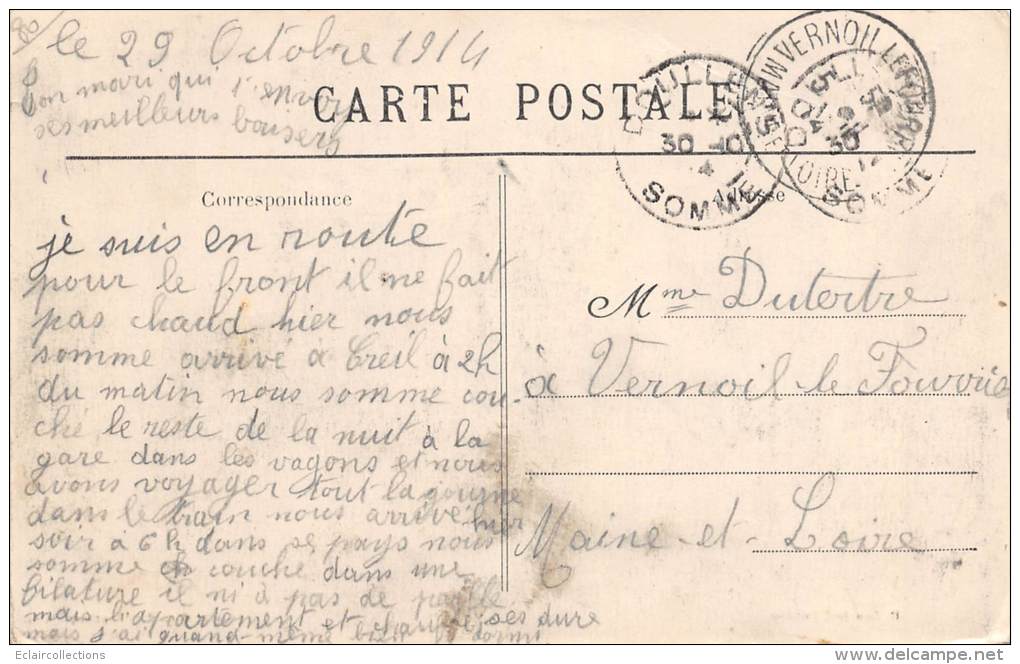 le 29 Octobre 1914
ton mari qui t'envoy
ses meilleurs baisers
CARTE POSTALE
DOULLENS
30-10
14
SOMME
VERNOIL LE FOURRIER
LOIRE
SOMME
Correspondance
Adresse
je suis en route
pour le front il ne fait
pas chaud hier nous
somme arrivé a Creil à 2h
du matin nous somme cou-
ché le reste de la nuit à la
gare dans les vagons et nous
avons voyager tout la gourne
dans le train nous arrivé hier
soir a 6h dans se pays nous
somme couche dans une
filature il ni à pas de paille
mais l'apartement et chaufé ses dure
mais j'ai quand-même bien dormi
Mme Dutertre
à Vernoil le Fourrié
Maine-et-Loire
Eclaircollections
delcampe.net